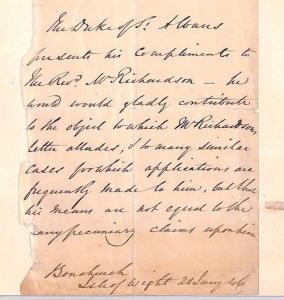 The Duke of St. Albans
presents his Compliments to
The Revd. Mr Richardson – he
would would gladly contribute
to the object to which Mr Richardson's
letter alludes, & to many similar
cases for which applications are
frequently made to him, but that
his means are not equal to the
many pecuniary claims upon him
Bonchurch
Isle of Wight 28 Jany